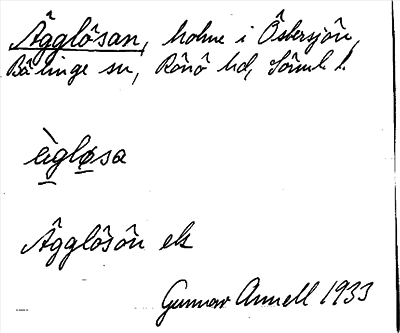 Ägglösan, holme i Östersjön,
Bälinge sn, Rönö hd, Sörml. l.
ègløsa
Ägglösön ek
Gunnar Annell 1933